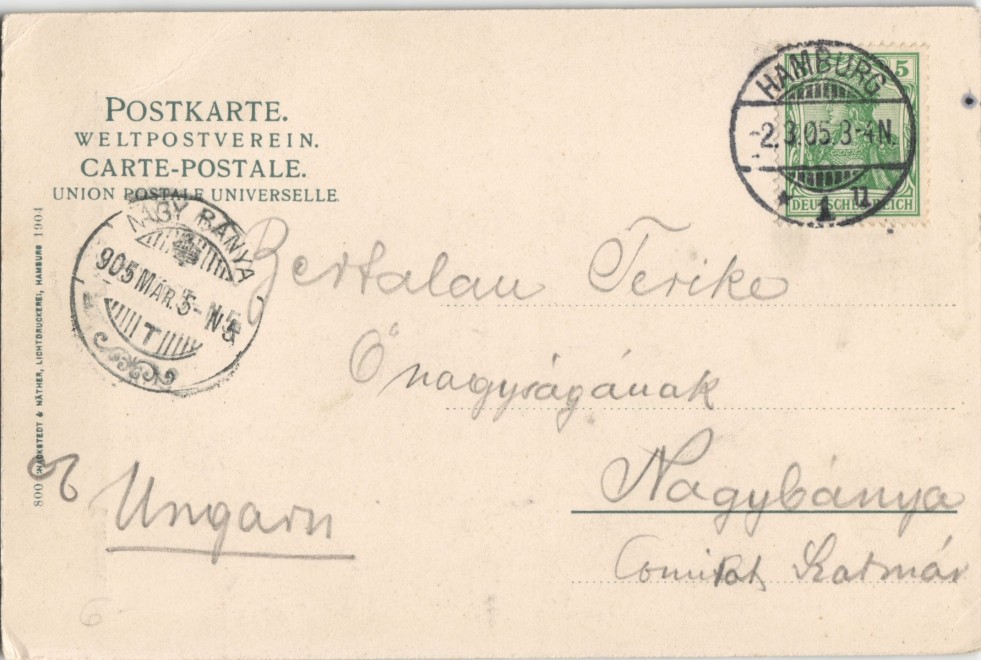 POSTKARTE.
WELTPOSTVEREIN.
CARTE-POSTALE.
UNION POSTALE UNIVERSELLE.
HAMBURG.
-2.3.05.3-4N.
* 1 u
5
DEUTSCHES REICH
NAGY BÁNYA
905 MÁR. 5-N5
T
Bertalan Terike
Őnagyságának
Nagybánya
Comitat Szatmár
Ungarn
800 KNACKSTEDT & NÄTHER, LICHTDRUCKEREI, HAMBURG 1904
6